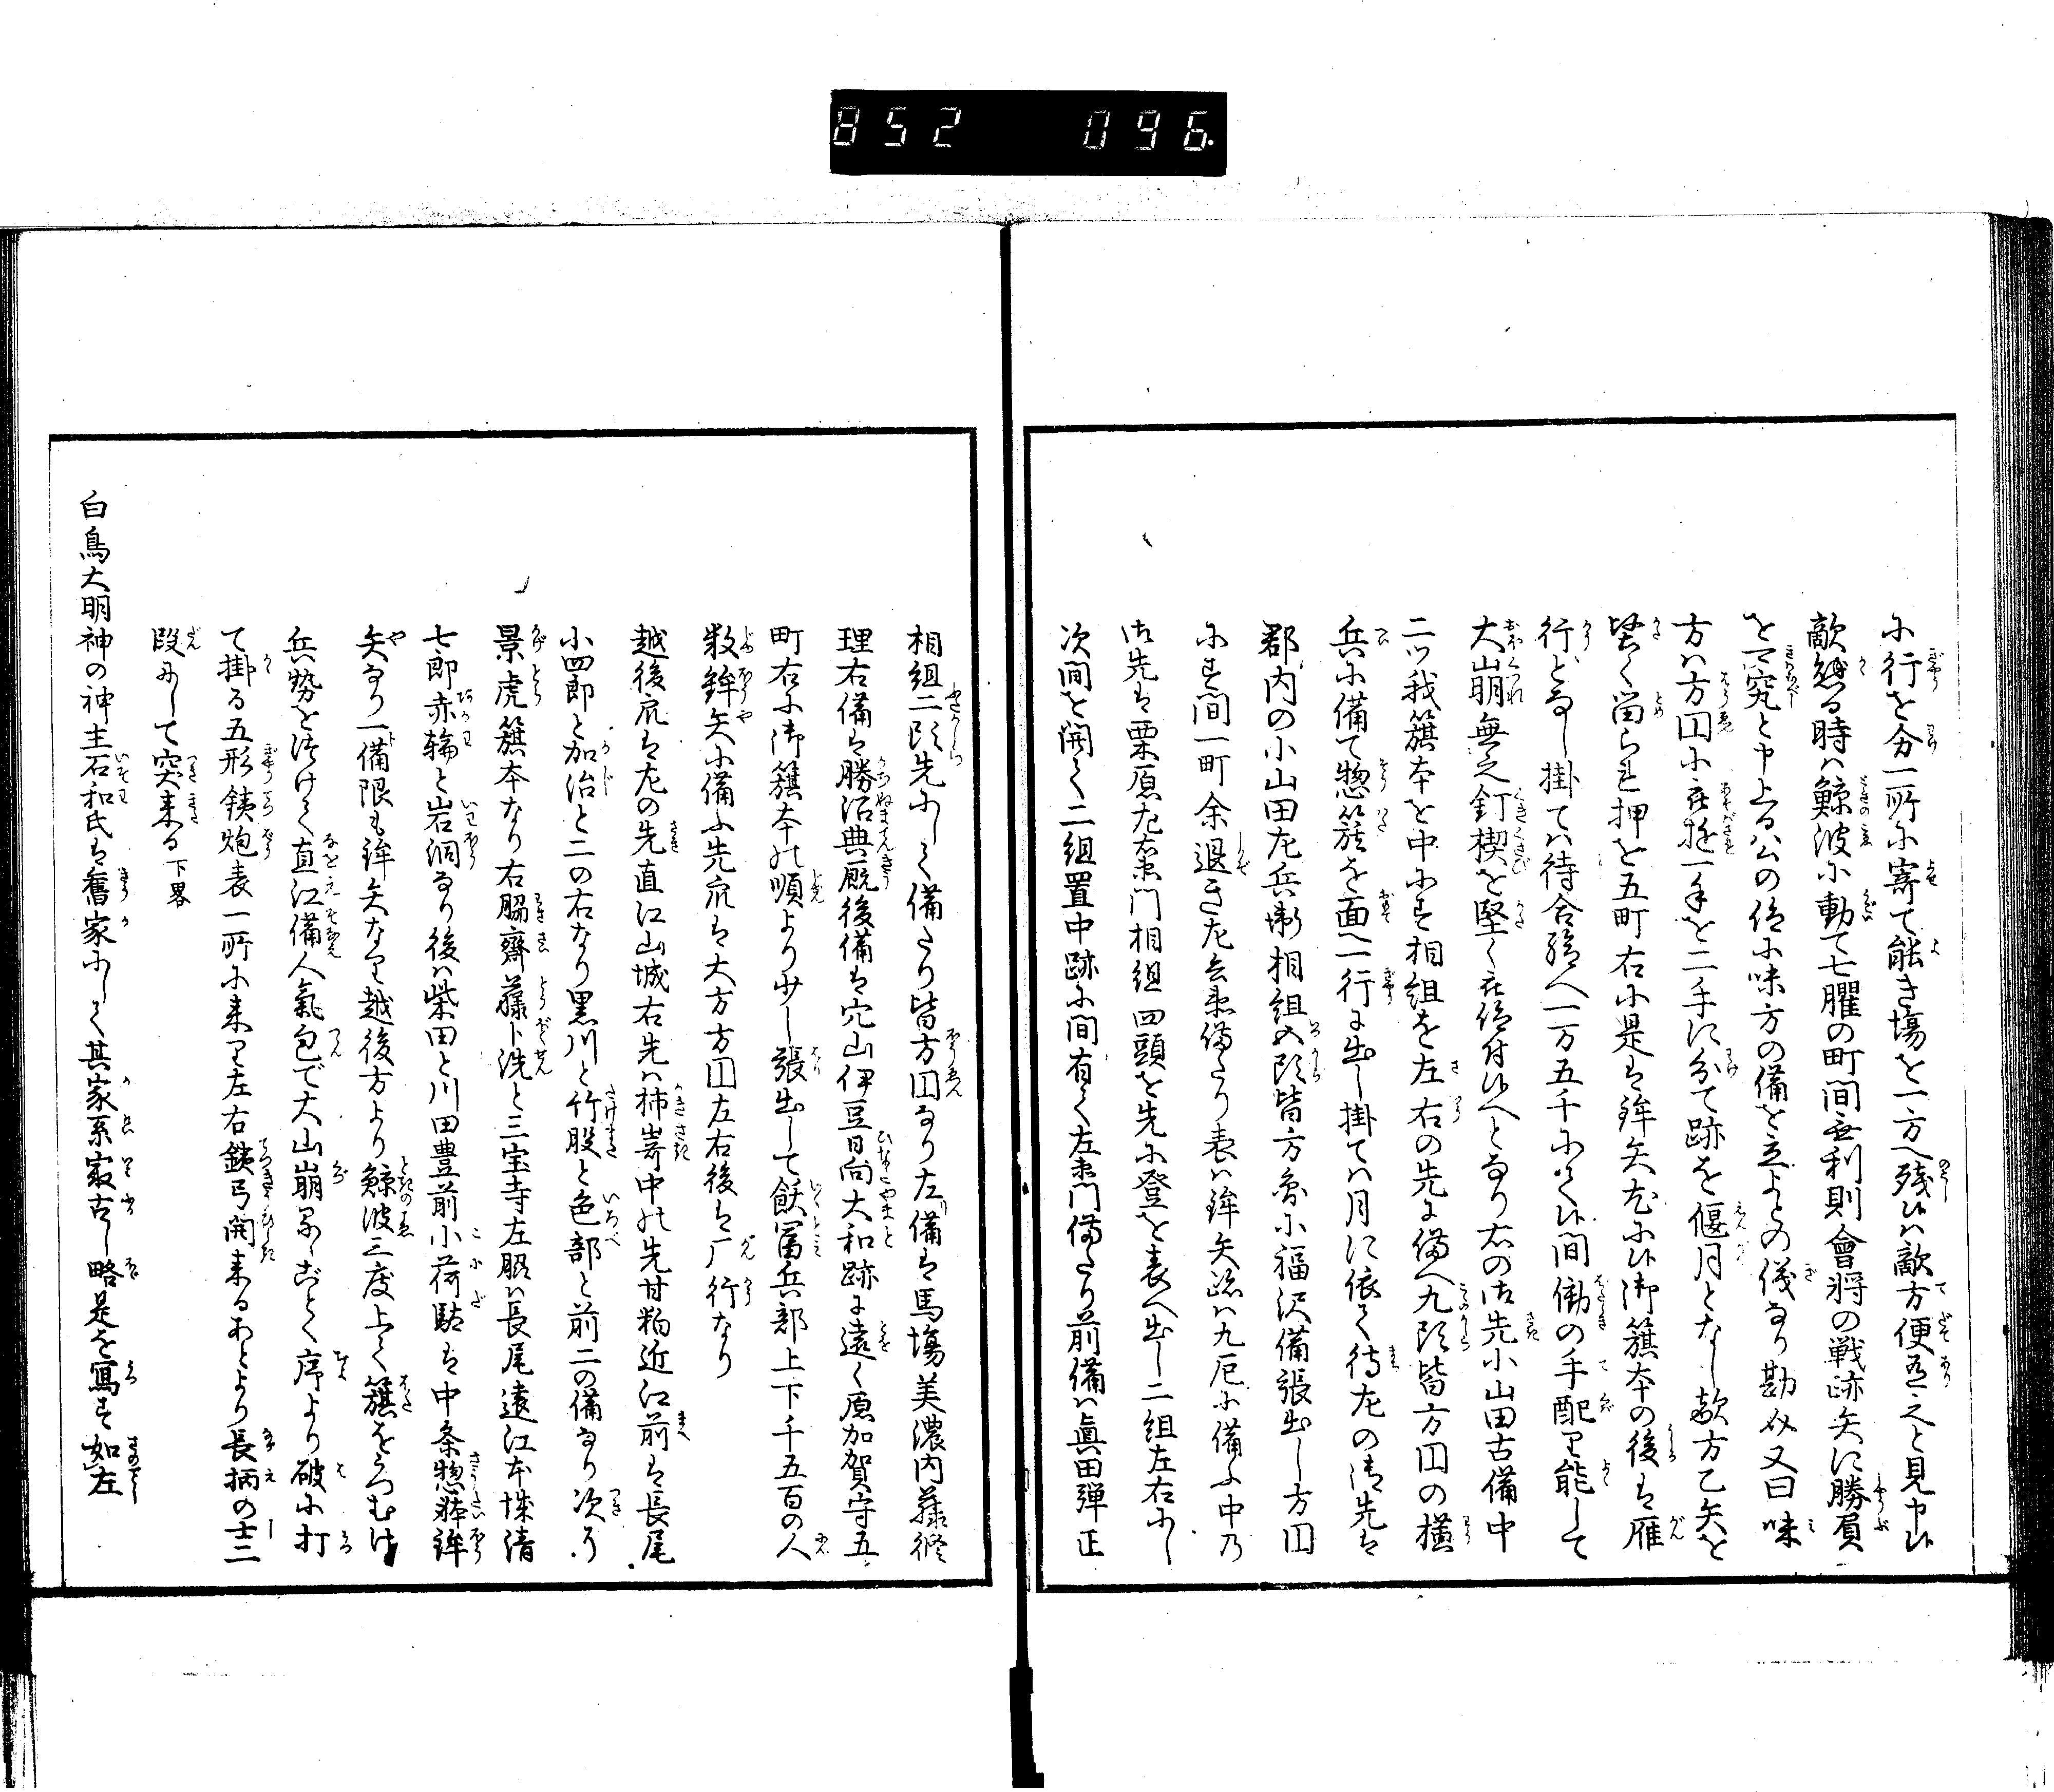 852 096.
に行を分一所に寄て能き場を一方へ残候ハ敵方便有之と見申候
敵懸る時ハ鯨波に動て七臞の町間無利則會将の戦跡矢に勝負
を究と申上る公の仰に味方の備を立よとの儀なり勘女又曰味
方ハ方円に在遊一手を二手に分て跡を偃月となし敵方乙矢を
堅く留られ押を五町右に是は鉾矢尤に候御籏本の後は雁
行となし掛てハ待合強へ一万五千にて候間働の手配り能して
大崩無之釘楔を堅く在仰付候へとなり右の御先小山田古備中
二ツ我籏本を中にす相組を左右の先に備へ九頭皆方円の横
兵に備て惣籏を面へ一行に出し掛てハ月に依て待左の御先は
郡内の小山田左兵衛相組五頭皆方に福沢備張出し方円
にす間一町余退き左兵衛備たり表ハ鉾矢跡ハ九厄に備ふ中乃
御先は栗原左衛門相組四頭を先に登を表へ出し二組左右にし
次間を開て二組置中跡に間有て左衛門備たり前備ハ真田弾正
相組二頭先にして備たり皆方円なり左備は馬場美濃内藤修
理右備は勝沼典厩後備は穴山伊豆日向大和跡に遠く原加賀守五
町右に御籏本の順より少し張出して飫冨兵部上下千五百の人
数鉾矢に備ふ先扇は大方方円左右後は厂行なり
越後扇は左の先直江山城右先ハ柿嵜中の先甘粕近江前は長尾
小四郎と加治と二の右なり黒川と竹股と色部と前二の備なり次なり
景虎籏本なり右脇齋藤下洗と三宝寺左脇ハ長尾遠江本堞清
七郎赤輪と岩洞なり後ハ柴田と川田豊前小荷駄は中条惣躰鉾
矢なり一備限も鉾矢なり越後方より鯨波三度上て籏をうつむけ
兵勢を附けて直江備人氣包で大山崩るゝごとく序より破に打
て掛る五形銕炮表一所に来り左右銕弓開来るあとより長柄の士二
段にして突来る 下畧
白鳥大明神の神主石和氏は舊家にして其家系最古し略是を寫す如左